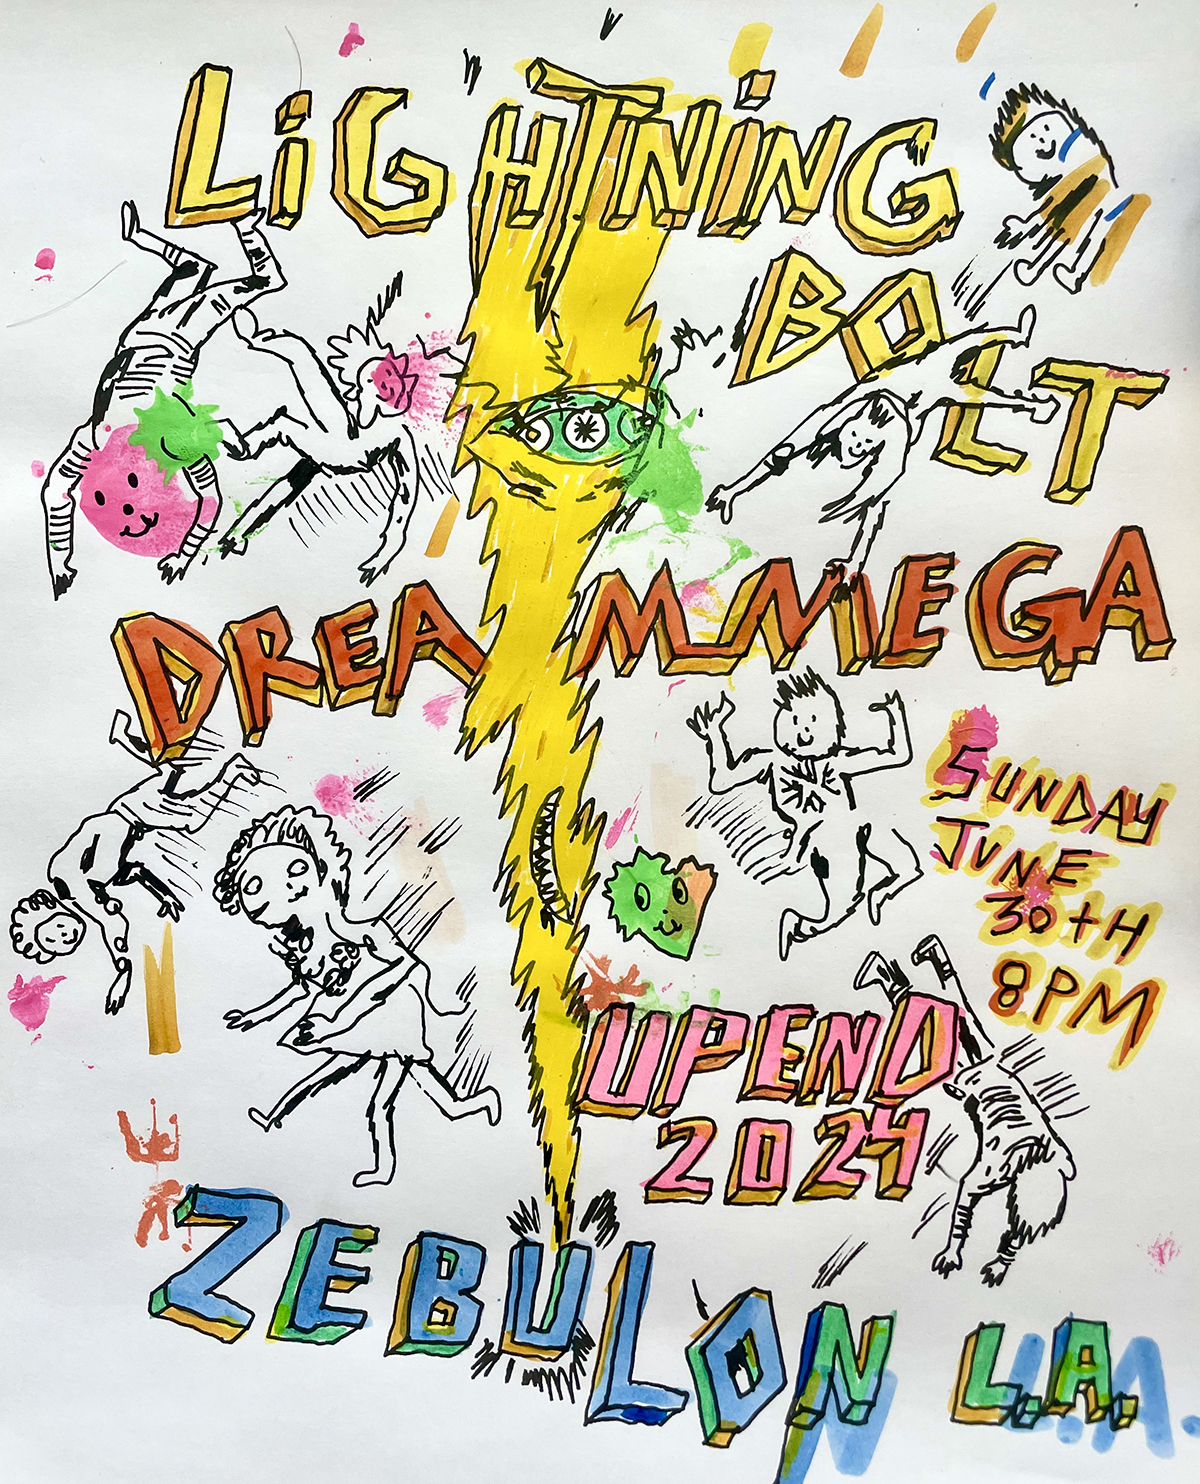 LiGHTNiNG
BOLT
DREAMMEGA
SUNDAY
JUNE
30tH
8PM
UPEND
2024
ZEBULON L.A.